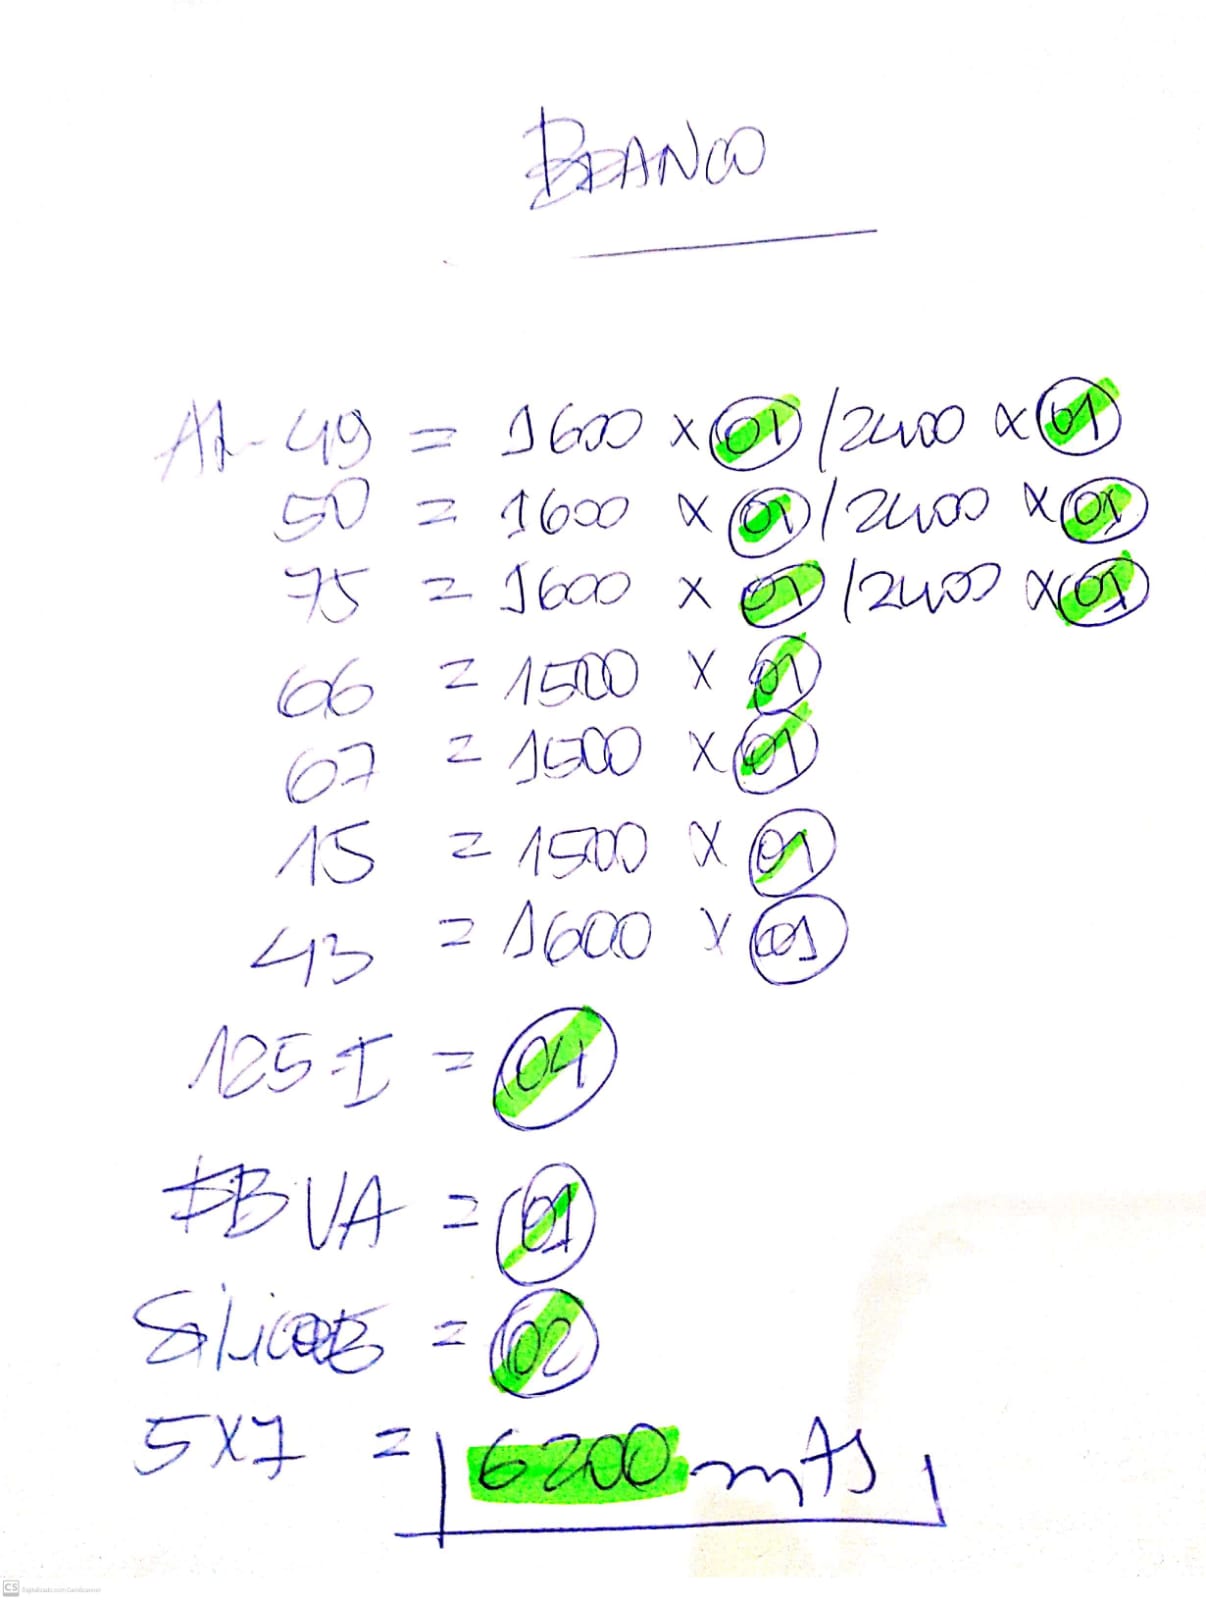 BRANCO
AL-49 = 1600 x 01 / 2400 x 01
50 = 1600 x 01 / 2400 x 01
75 = 1600 x 01 / 2400 x 01
66 = 1500 x 01
67 = 1500 x 01
15 = 1500 x 01
43 = 1600 x 01
125-I = 04
BVA = 01
Silicone = 02
5x7 = 6200 mts
CS Digitalizado com CamScanner